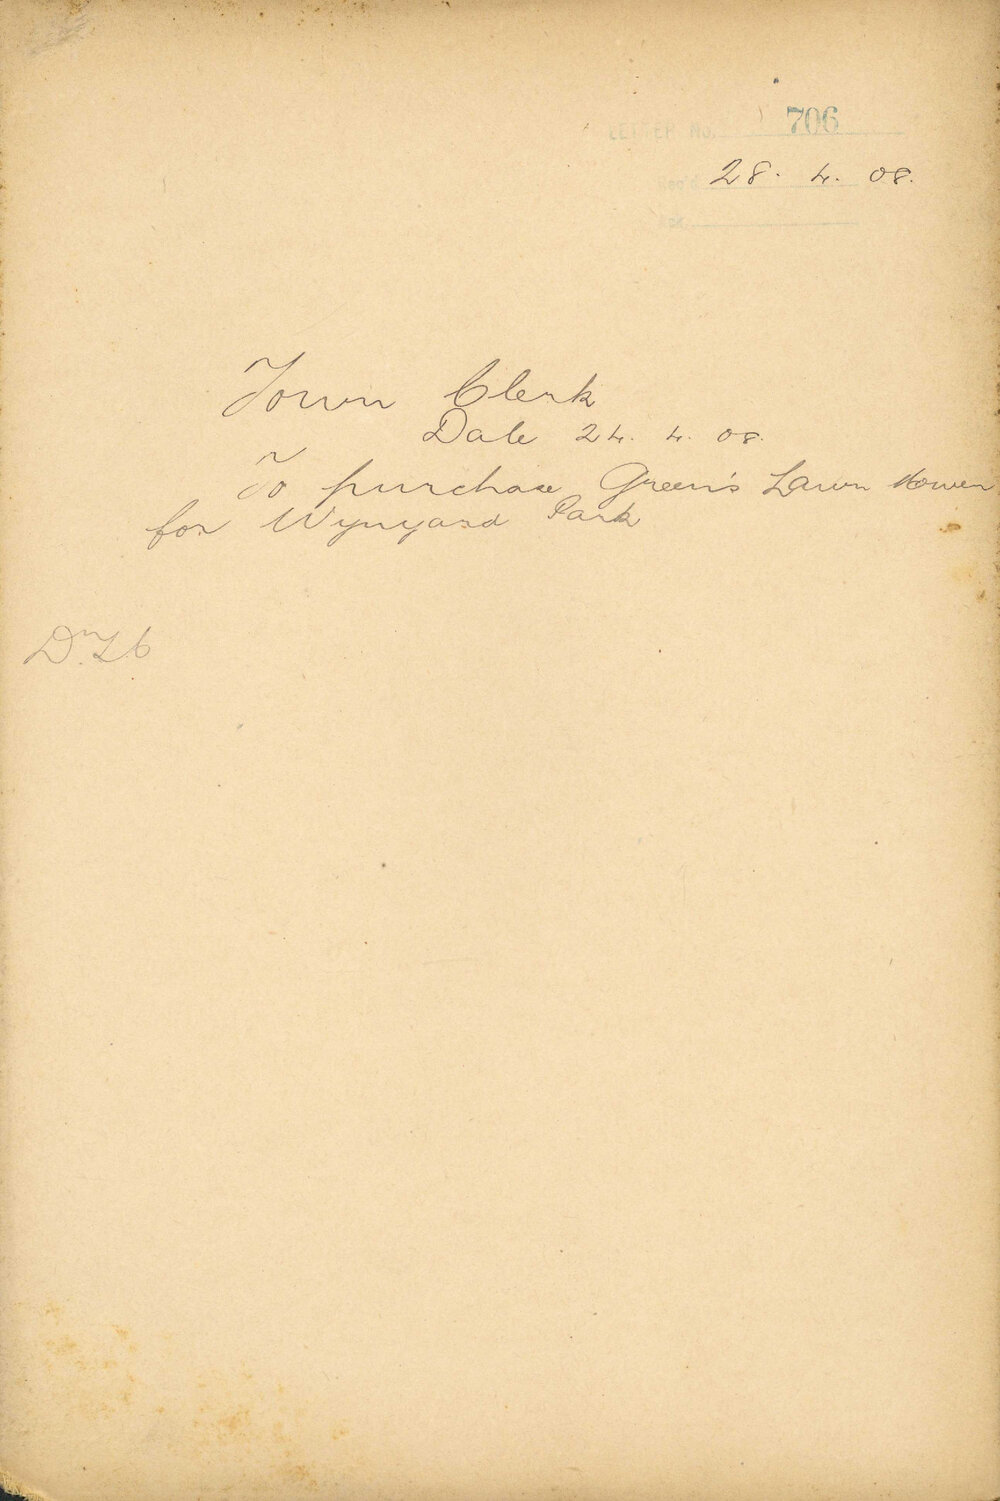 LETTER No. 706
Rec'd 28. 4. 08.
Town Clerk
Date 24. 4. 08.
To purchase Green's Lawn Mower
for Wynyard Park